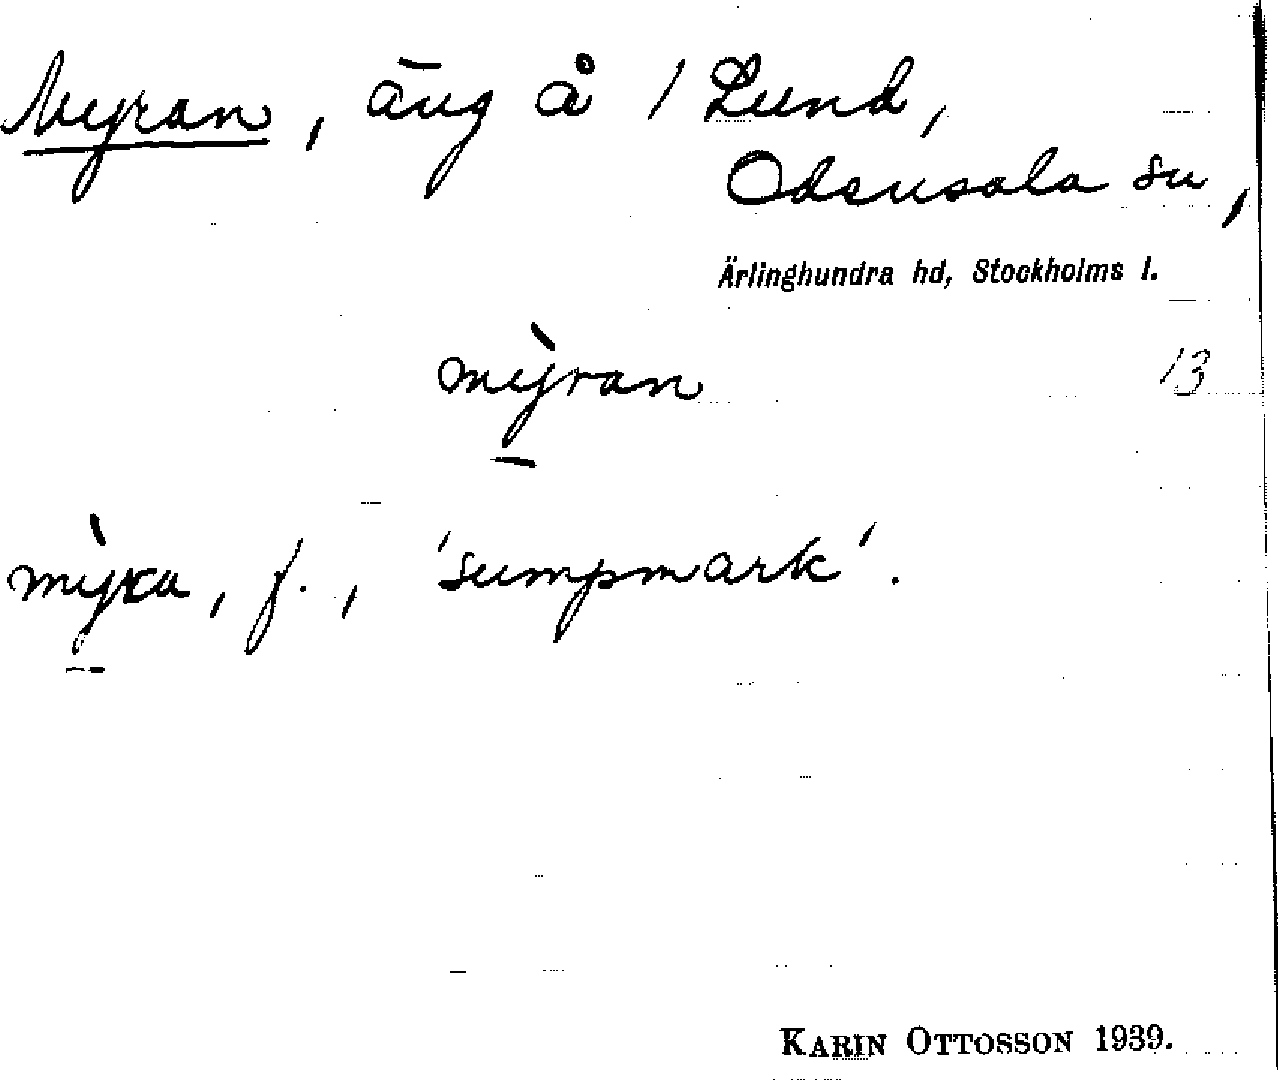 Myran, äng å 1 Lund,
Odensala sn,
Ärlinghundra hd, Stockholms l.
mỳran
13
mỳra, f., 'sumpmark'.
KARIN OTTOSSON 1939.